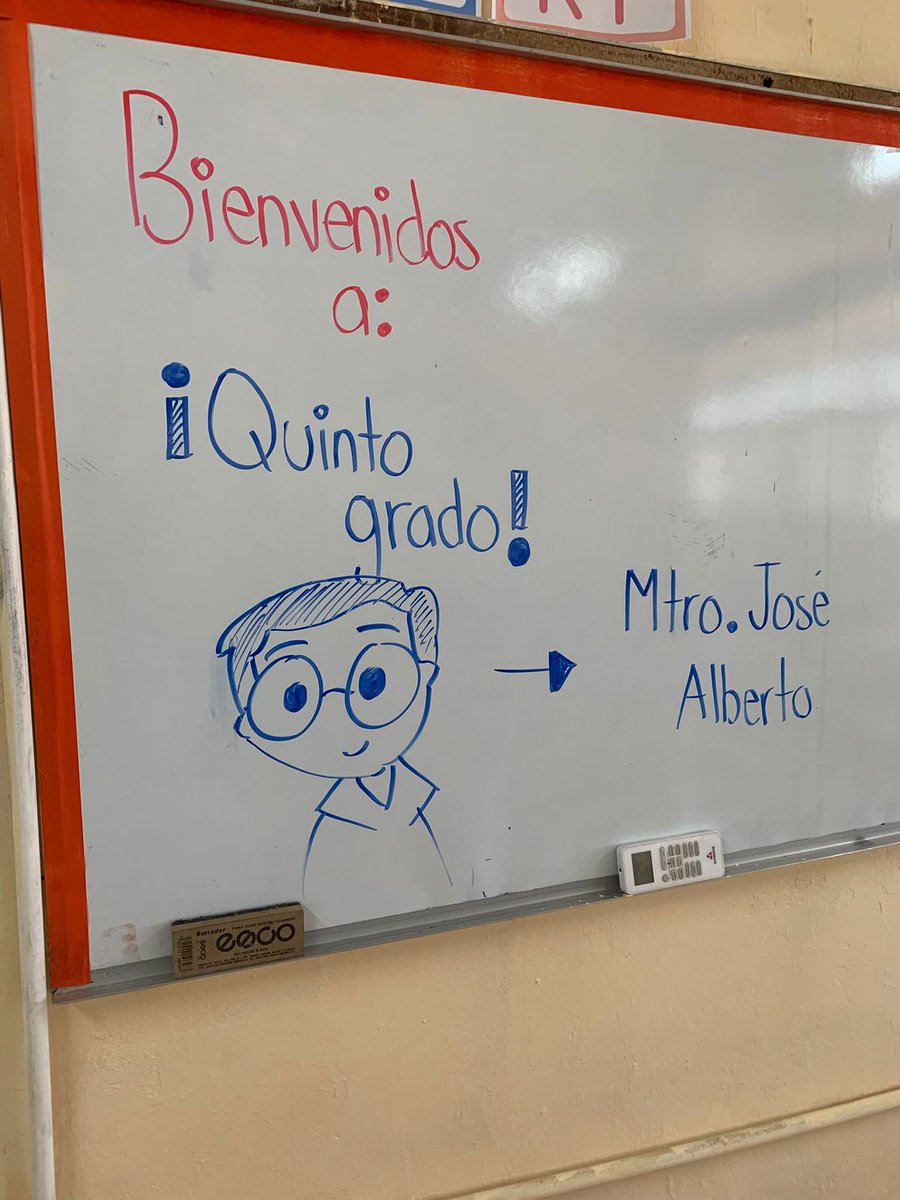 Bienvenidos
a:
¡Quinto
grado!
Mtro. José
Alberto
Borrador
eeco